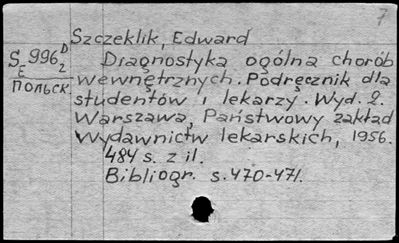 7
Szczeklik, Edward
S 996 D
E 2
ПОЛЬСК
Diagnostyka ogólna chorób
wewnętrznych. Podręcznik dla
studentów i lekarzy. Wyd. 2.
Warszawa, Państwowy zakład
wydawnictw lekarskich, 1956.
484 s. z il.
Bibliogr. s. 470-471.